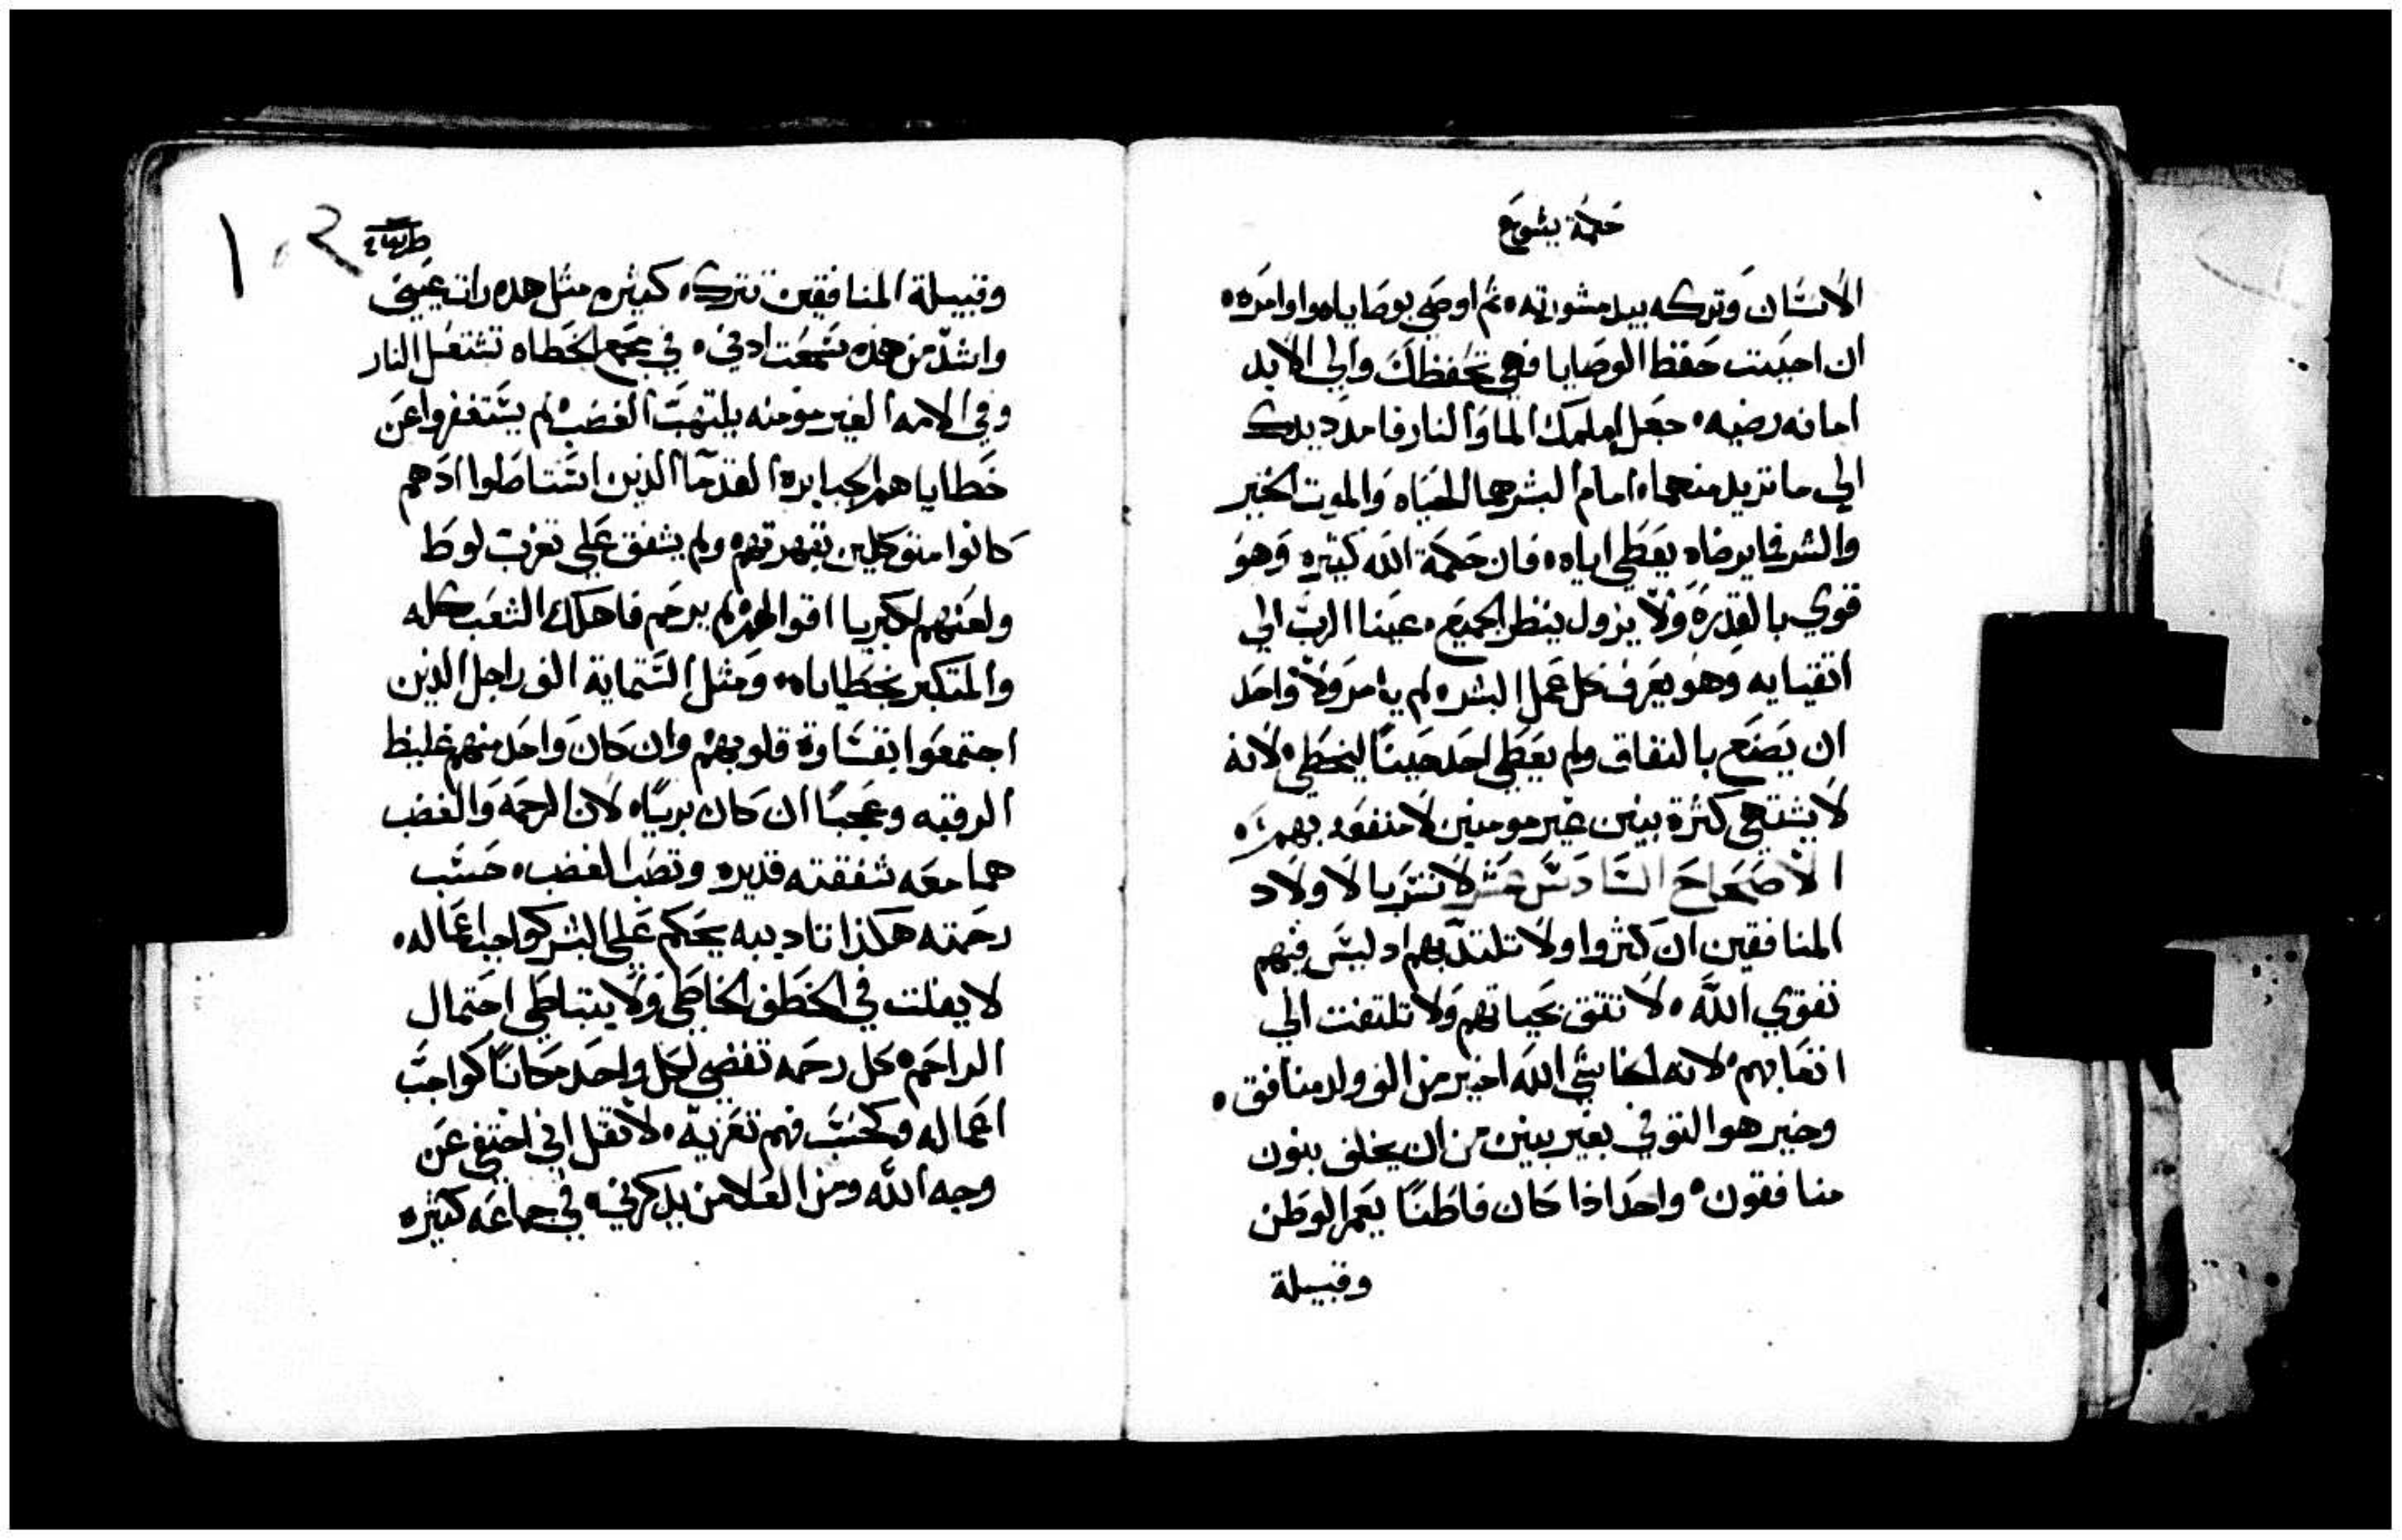 حكمة يشوع
الانسان وتركه بيد مشورته ثم اوصى بوصاياه واوامره
ان احببت حفظ الوصايا فهي تحفظك والي الابد
امانه رضيه جعل امامك الما والنار فامدد يدك
الي ما تريد منهما امام البشر هما الحياه والموت الخير
والشر فما يرضاه يعطي اياه فان حكمة الله كثيره وهو
قوي بالقدره ولا يزول ينظر الجميع عينا الرب الي
اتقيايه وهو يعرف كل عمل البشر لم يامر ولا واحد
ان يصنع بالنفاق ولم يعطي احد حينا ليخطي لانه
لا يشتهي كثرة بينن غير مومنين لا منفعه بهم
الاصحاح السادس عشر لا تتربا لاولاد
المنافقين ان كثروا ولا تلتذ بهم اد ليس فيهم
تقوي الله لا تتق بحياتهم ولا تلتفت الي
اتعابهم لانه لخاشي الله اخير من الف ولد منافق
وخير هو التوفي بغير بينن من ان يخلف بنون
منافقون واحد اذا كان فاطنا يعمر الوطن
وقبيلة
١٠٢
وقبيلة المنافقين تترك كثيره مثل هده رات عيني
واشد من هذه سمعت ادني في مجمع الخطاه تشتعل النار
وفي الامه الغير مومنه يلتهب الغضب لم يستغفروا عن
خطاياهم الجبابره القدما الذين استشاطوا ادهم
كانوا متوكلين بقهرتهم ولم يشفق علي تغرب لوط
ولعنهم لكبريا اقوالهم لم يرحم فاهلك الشعب كله
والمتكبر بخطاياه ومثل الستماية الف راجل الذين
اجتمعوا بقساوة قلوبهم وان كان واحد منهم غليظ
الرقبه وعجبا ان كان بريا لان الرحمه والغضب
هما معه شفقته قديره وتصب الغضب حسب
رحمته هكذا تاديبه يحكم علي البشر كواجب اعماله
لا يفلت في الخطف الخاطي ولا يتباطي احتمال
الراحم كل رحمه تقضي لكل واحد مكانا كواجب
اعماله وكحسب فهم تعزيه لا تقل اني اختفي عن
وجه الله ومن العلا من يدكرني في جماعه كثيره